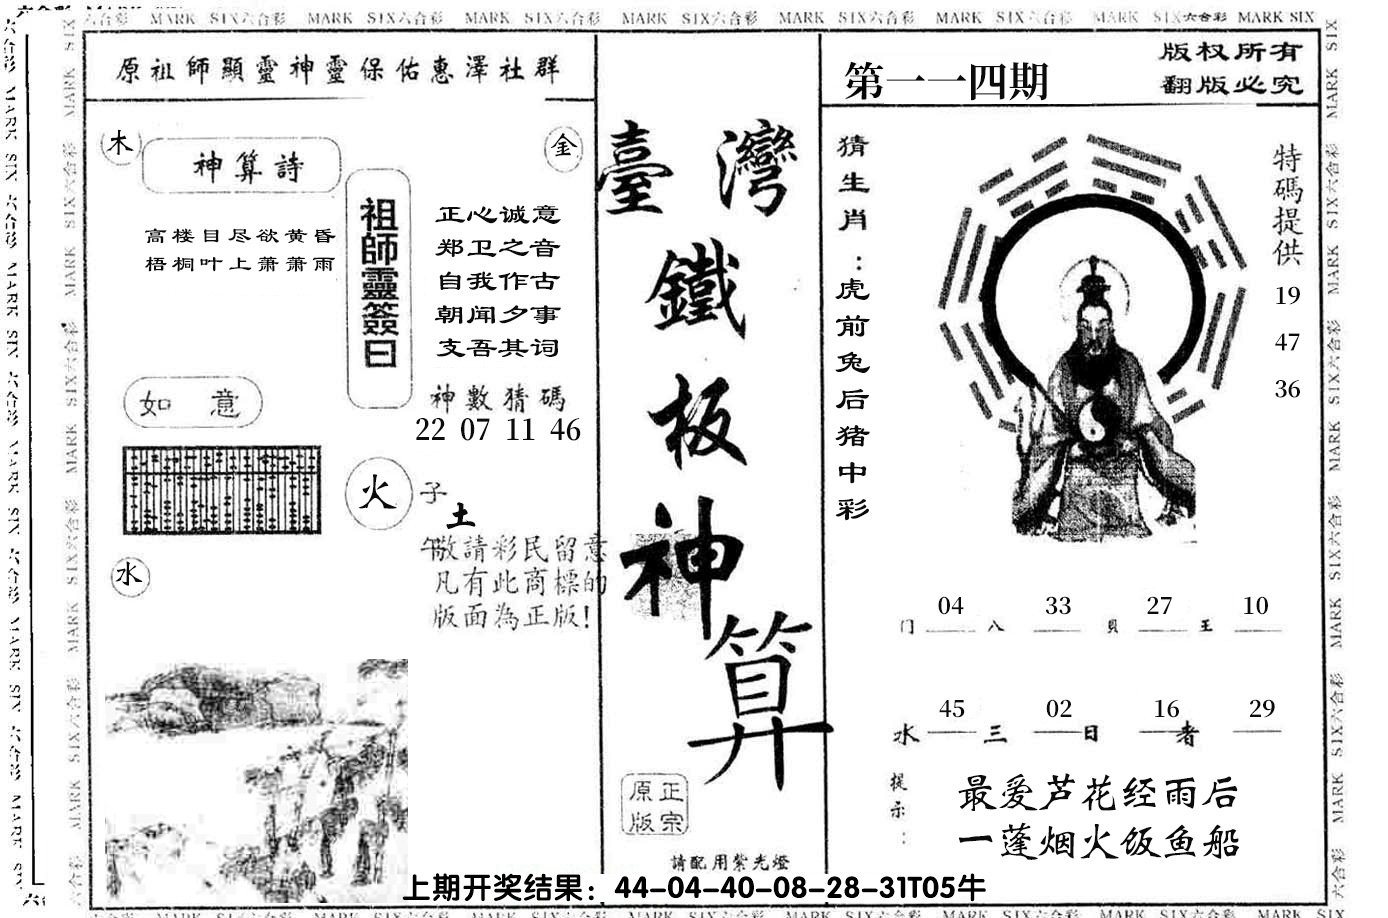 六合彩 MARK SIX六合彩 MARK SIX六合彩 MARK SIX六合彩 MARK SIX六合彩 MARK SIX六合彩 MARK SIX六合彩 MARK SIX六合彩 MARK SIX
原祖師顯靈神靈保佑惠澤社群
木
金
神算詩
高楼目尽欲黄昏
梧桐叶上萧萧雨
祖師靈簽曰
正心诚意
郑卫之音
自我作古
朝闻夕事
支吾其词
神數猜碼
22 07 11 46
如意
火
子
土
午
水
敬請彩民留意
凡有此商標的
版面為正版!
臺灣
鐵
板
神
算
正宗
原版
請配用紫光燈
第一一四期
版权所有
翻版必究
猜生肖:虎前兔后猪中彩
特碼提供
19
47
36
04 33 27 10
门 八 貝 王
45 02 16 29
水 三 日 者
提示:
最爱芦花经雨后
一蓬烟火饭鱼船
上期开奖结果：44-04-40-08-28-31T05牛